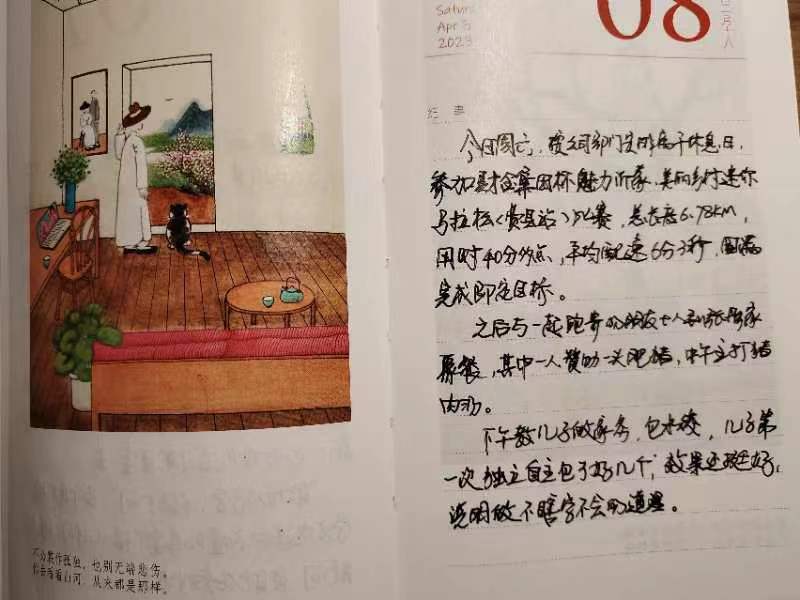 不必装作孤独，也别无端悲伤。
你去看看山河，从来都是那样。
Satur
Apr 8
2023
08
纪 事
今日周六，按公司部门安排属于休息日，
参加县 金集团杯魅力沂蒙、美丽乡村迷你
马拉松《费县站》比赛，总长度6.78km，
用时40分多点，平均配速6分3秒，圆满
完成即定目标。
之后与一起跑步的朋友七人到张 家
聚餐，其中一人赞助一头肥猪，中午主打猪
肉
下午教儿子做家务，包水饺，儿子第
一次独立自主包了好几个，效果还挺好，
说明 不 字不会的道理。